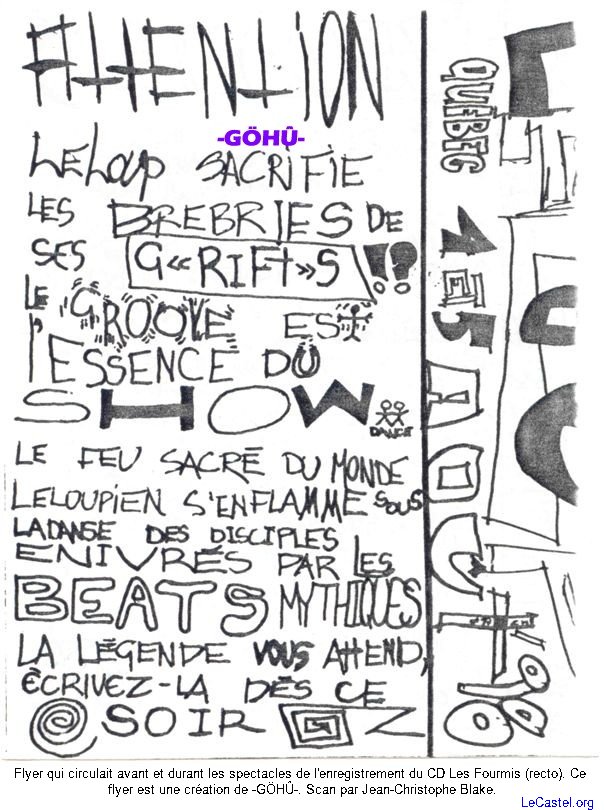 ATTENTION
-GÖHÛ-
LELOUP SACRIFIE
LES BREBRIES DE
SES G«RIFT»S !?
LE GROOVE EST
l'ESSENCE DU
SHOW
DANCE
LE FEU SACRÉ DU MONDE
LELOUPIEN S'ENFLAMME SOUS
LA DANSE DES DISCIPLES
ENIVRÉS PAR LES
BEATS MYTHIQUES
LA LÉGENDE VOUS ATTEND,
ÉCRIVEZ-LA DÈS CE
SOIR
QUÉBEC 1 ET 5 AOUT 98
Flyer qui circulait avant et durant les spectacles de l'enregistrement du CD Les Fourmis (recto). Ce
flyer est une création de -GÖHÛ-. Scan par Jean-Christophe Blake.
LeCastel.org